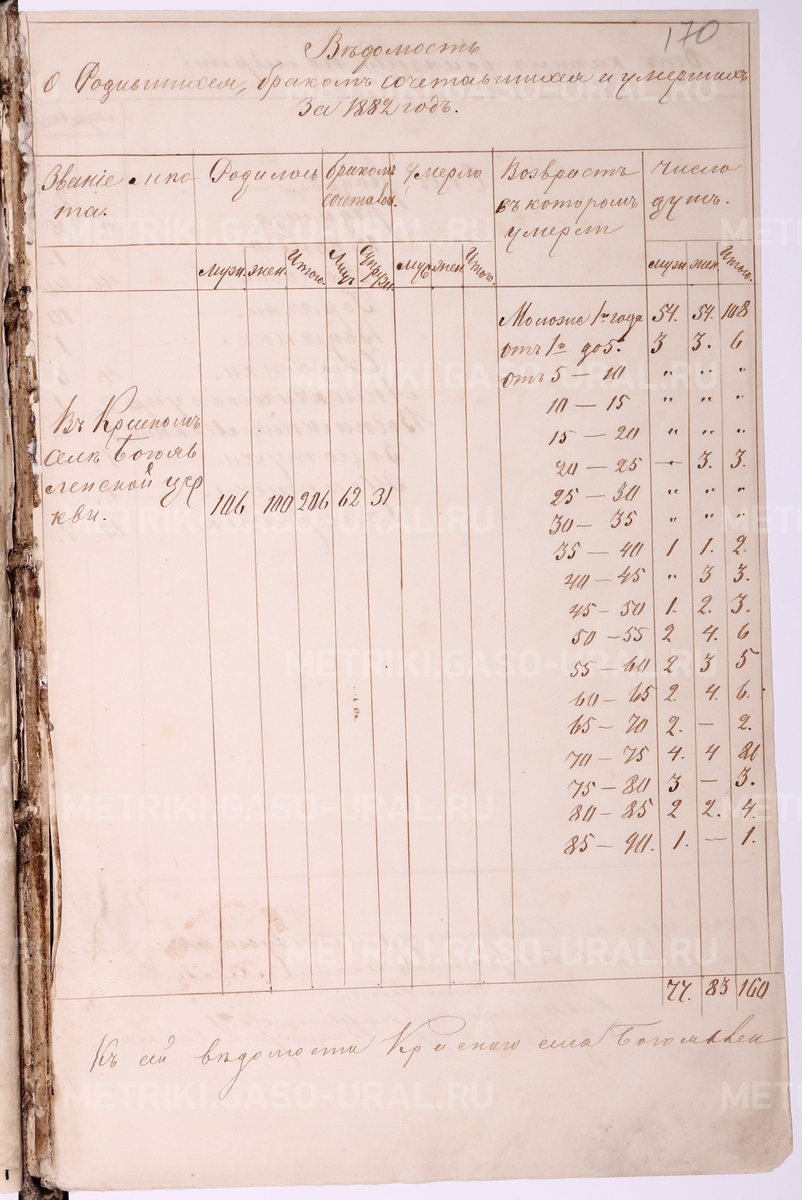 170
Вѣдомость
о Родившихся, бракомъ сочетавшихся и умершихъ
За 1882 годъ.
Званіе мѣста. Родилось бракомъ сочетавш. умерло Возврастъ въ которомъ умерли Число душъ.
мужи. жен. Итого. Лицъ супруж. муж жен. Итого. мужи жен. Итого.
Моложе 1го года 54. 54. 108
отъ 1го до 5. 3 3. 6
отъ 5 — 10 " " "
10 — 15 " " "
15 — 20 " " "
20 — 25 — 3. 3.
25 — 30 " " "
30 — 35 " " "
35 — 40 1 1. 2.
40 — 45 " 3 3.
45 — 50 1. 2. 3.
50 — 55 2 4. 6
55 — 60 2 3 5
60 — 65 2. 4. 6.
65 — 70 2. — 2.
70 — 75 4. 4 8
75 — 80 3 — 3.
80 — 85 2 2. 4.
85 — 90. 1. — 1.
Въ Красномъ
селѣ Богояв
ленской цер
кви.
106 100 206 62 31
77. 83 160
Къ сей вѣдомости Краснаго села Богоявлен
METRIKI.GASO-URAL.RU